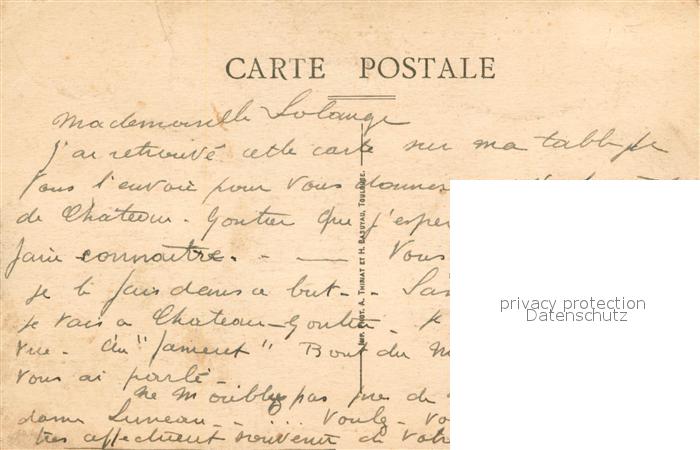 CARTE POSTALE
Mademoiselle Solange
J'ai retrouvé cette carte sur ma table je
vous l'envoie pour vous donner
de Chateau-Gontier que j'esper
faire connaitre. - - — Vous
je le fais dans ce but - .
Je vais a Chateau-Gontier - Je
vue - Du "fameux" Bout du M
vous ai parlé -
ne m'oubliez pas pres de
dame Luneau - - .... Voulez-vo
tres affectueux souvenir de votre
IMP. PHOT. A. THIRIAT ET H. BASUYAU, TOULOUSE.
privacy protection
Datenschutz